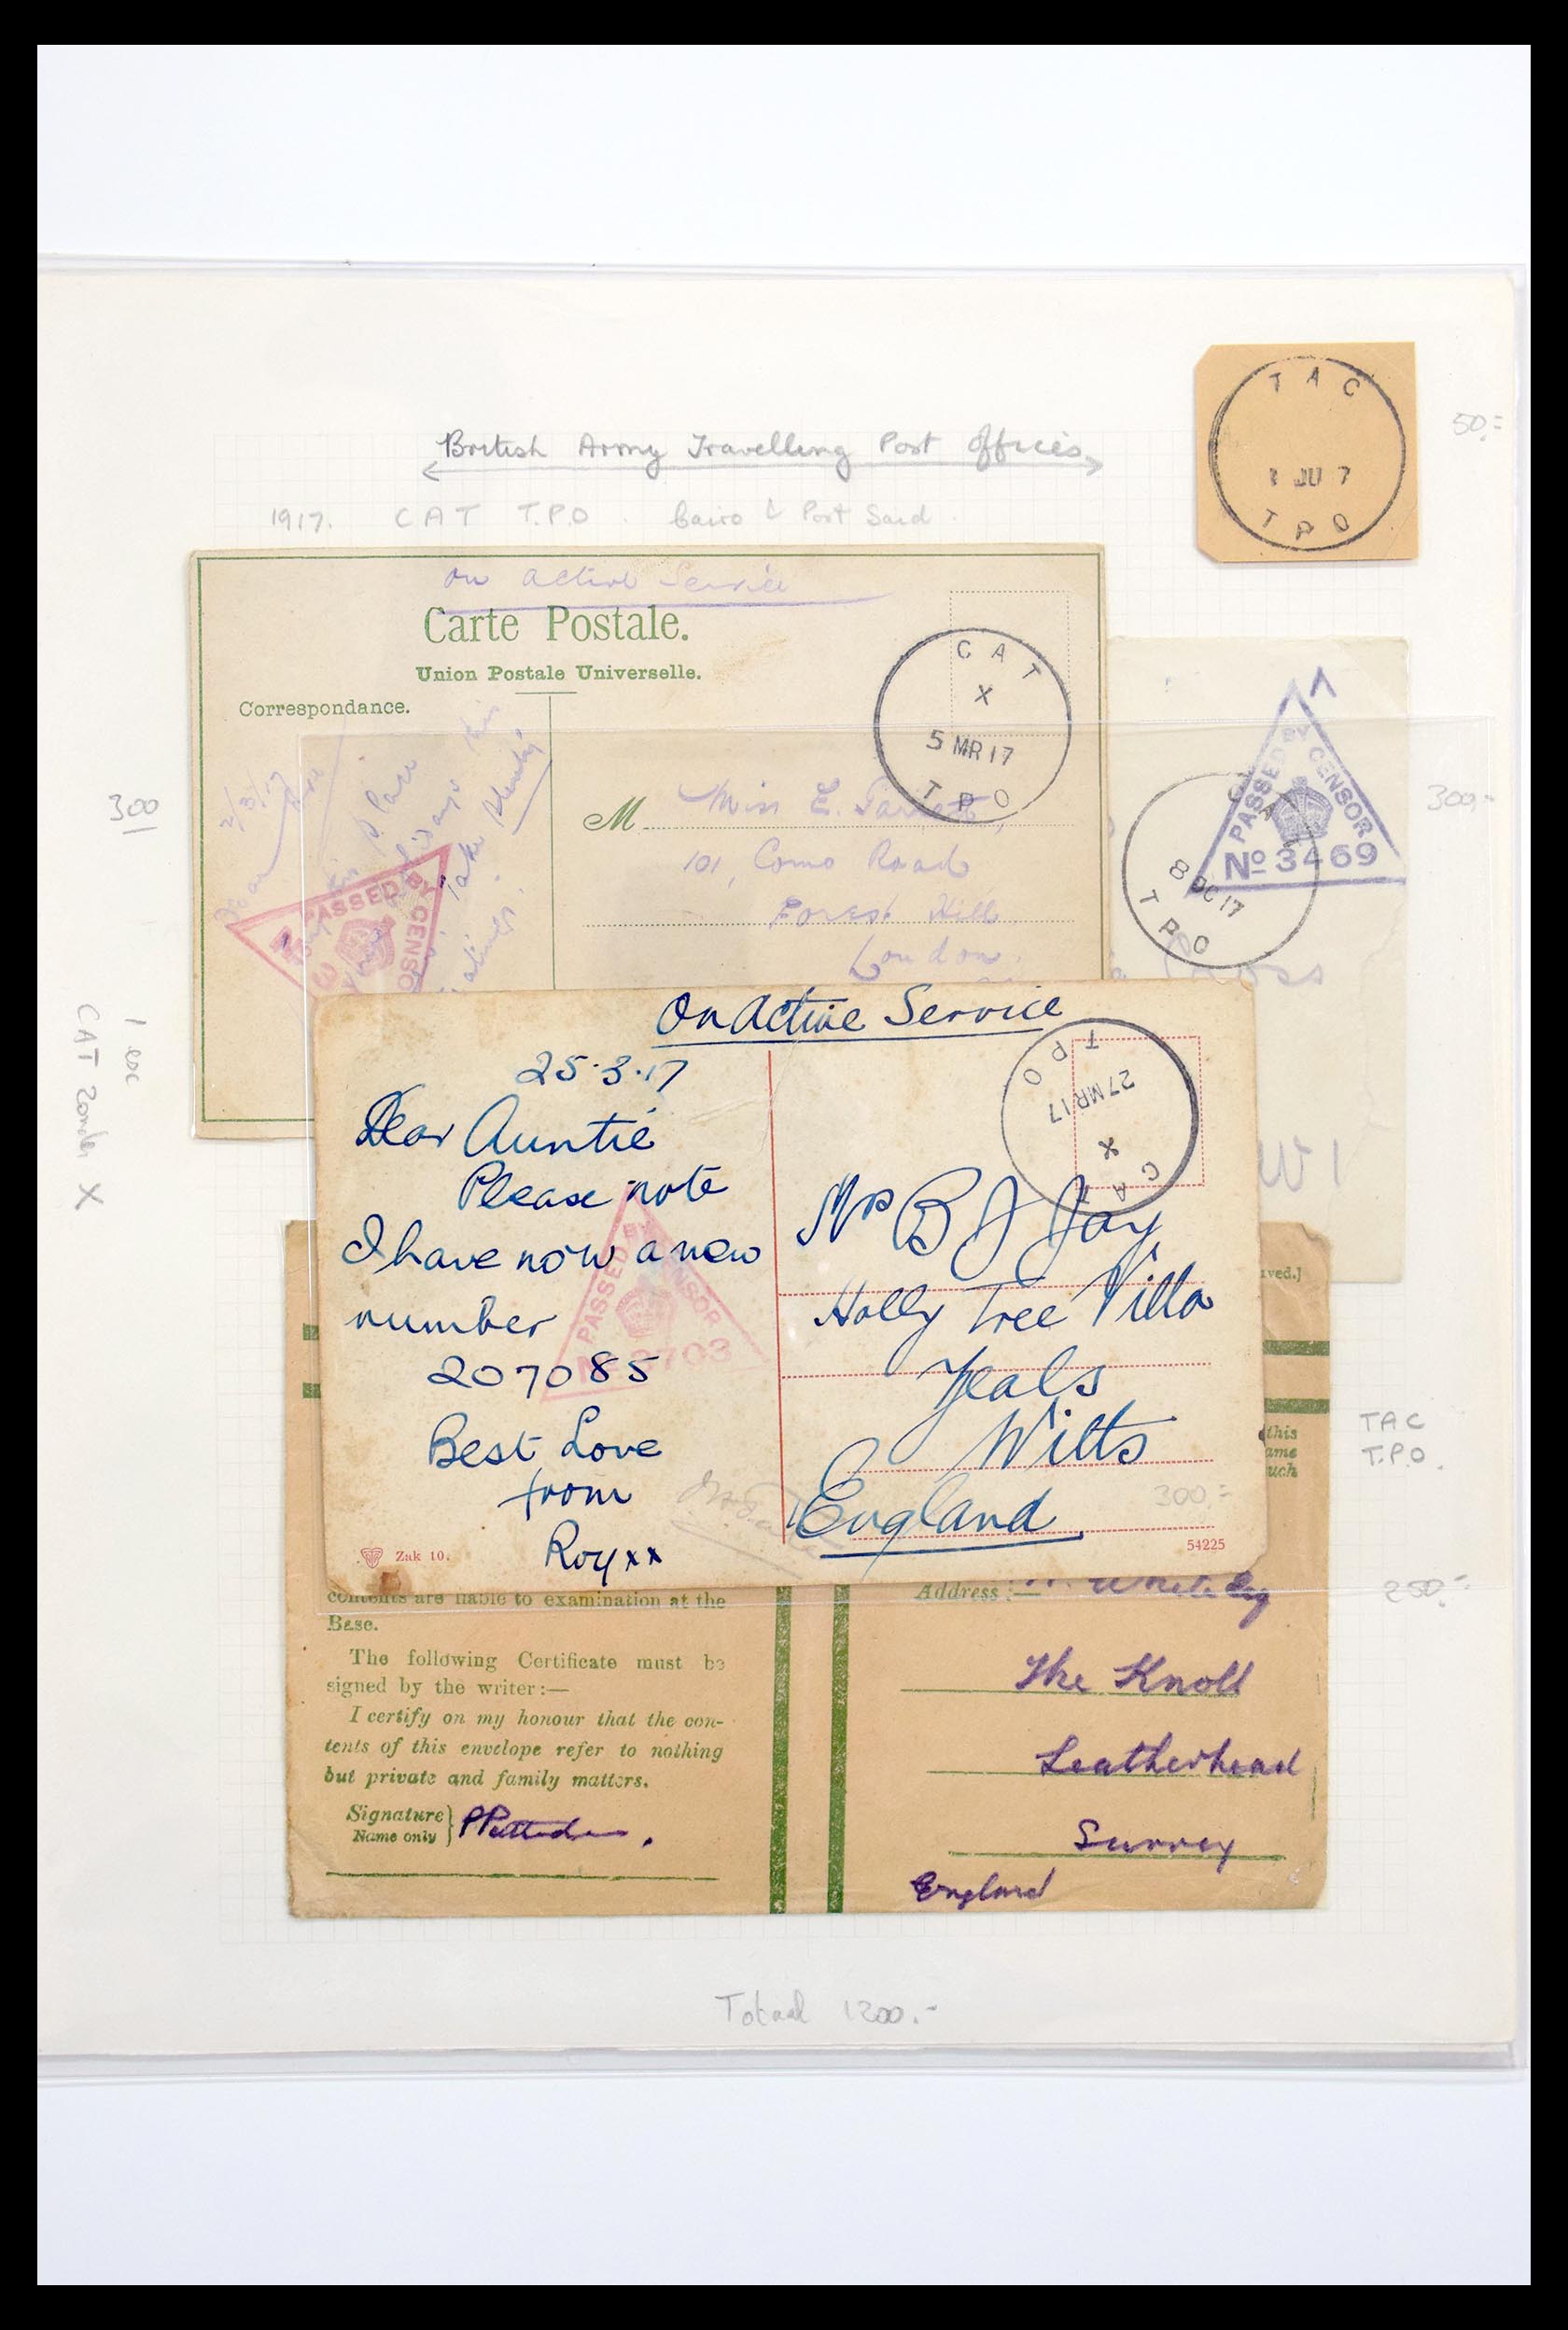 TAC
JU 7
TPO
50.-
British Army Travelling Post Offices
1917. CAT T.P.O. Cairo & Port Said
On Active Service
Carte Postale.
Union Postale Universelle.
Correspondance.
CAT
X
5 MR 17
TPO
2/3/17
Dear
PASSED BY CENSOR
M
Miss E.
101, Como Road
Forest Hill
London.
300
PASSED BY CENSOR
No 3469
8 DC 17
TPO
300.-
1
CAT zonder X
On Active Service
25.3.17
Dear Auntie
Please note
I have now a new
number
207085
Best Love
from
Roy xx
Zak 10.
PASSED BY CENSOR
3703
CAT
X
27 MR 17
TPO
Mrs B J Jay
Holly Tree Villa
Zeals
Wilts
England
300.-
54225
this
ame
uch
TAC
T.P.O.
250.-
contents are liable to examination at the
Base.
The following Certificate must be
signed by the writer:—
I certify on my honour that the con-
tents of this envelope refer to nothing
but private and family matters.
Signature
Name only
Address :—
The Knoll
Leatherhead
Surrey
England
Totaal 1200.-